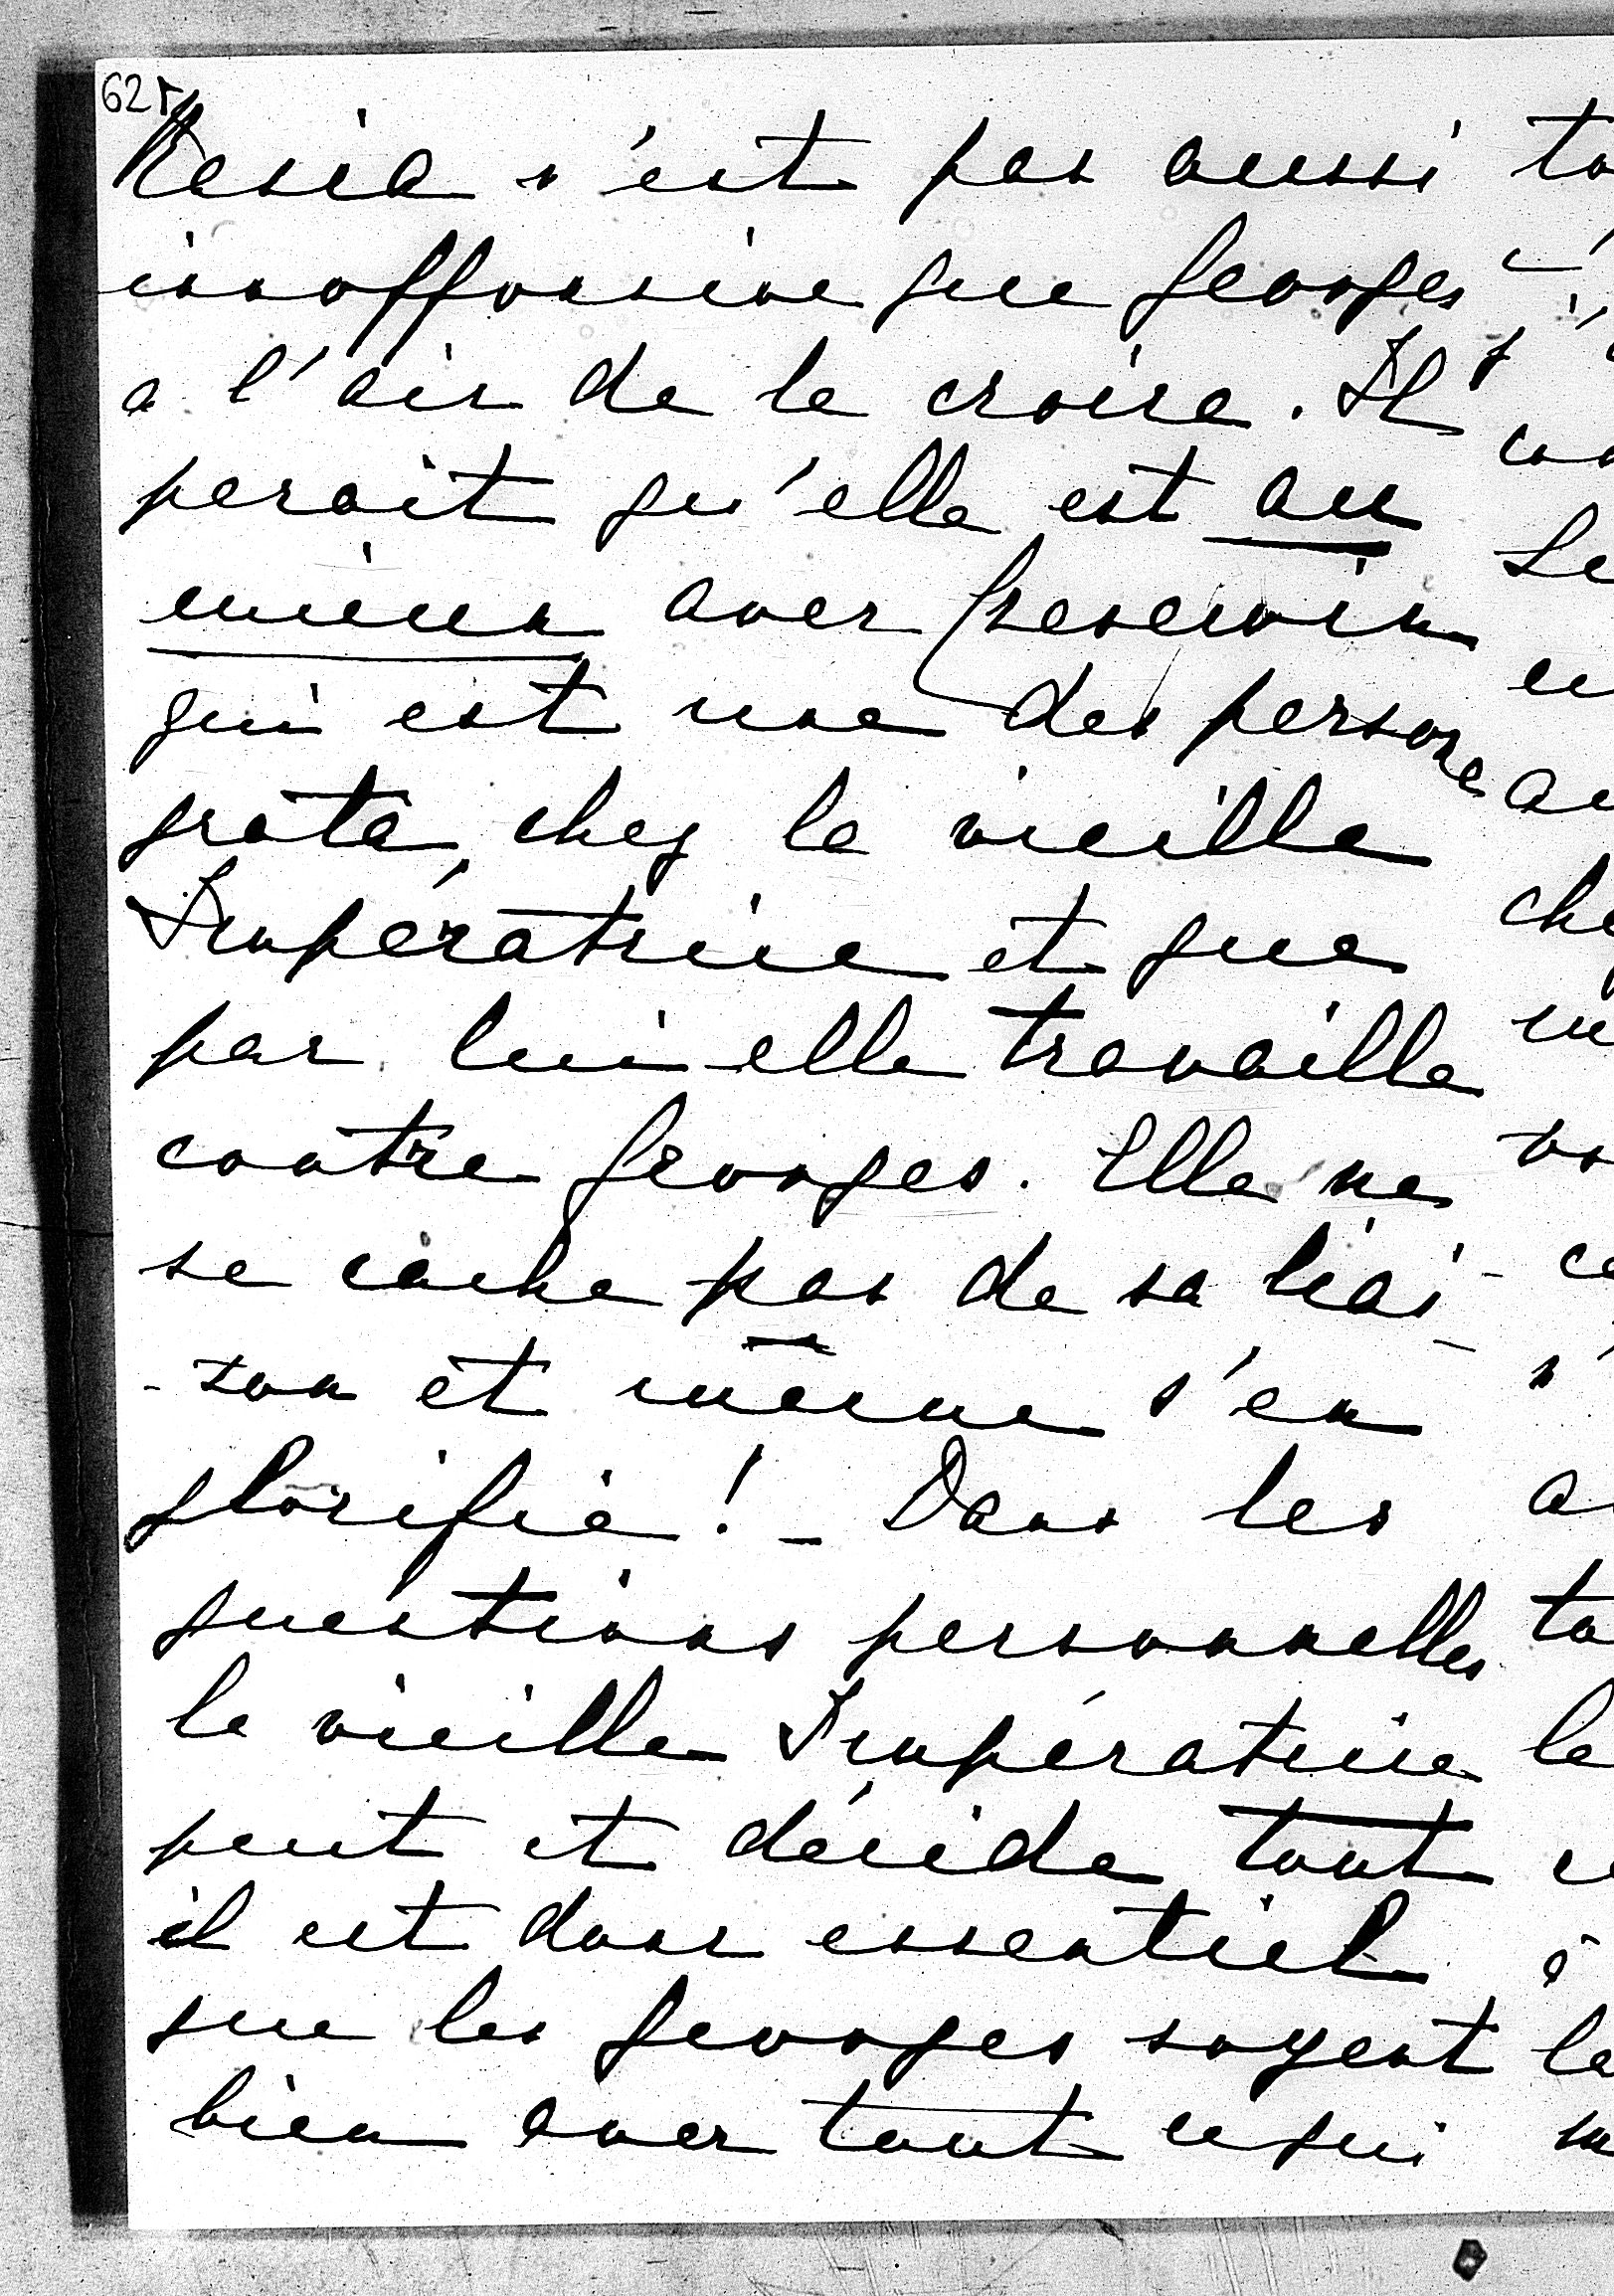 62r
Kasia n'est pas aussi
inoffensive que Georges
a l'air de le croire. Il
parait qu'elle est au
mieux avec
qui est une des persona
grata, chez la vieille
Impératrice et que
par lui elle travaille
contre Georges. Elle ne
se cache pas de sa liai-
-son et même s'en
glorifie! - Dans les
questions personnelles
la vieille Impératrice
peut et décide tout
il est donc essentiel
que les Georges soyent
bien avec tout ce qui